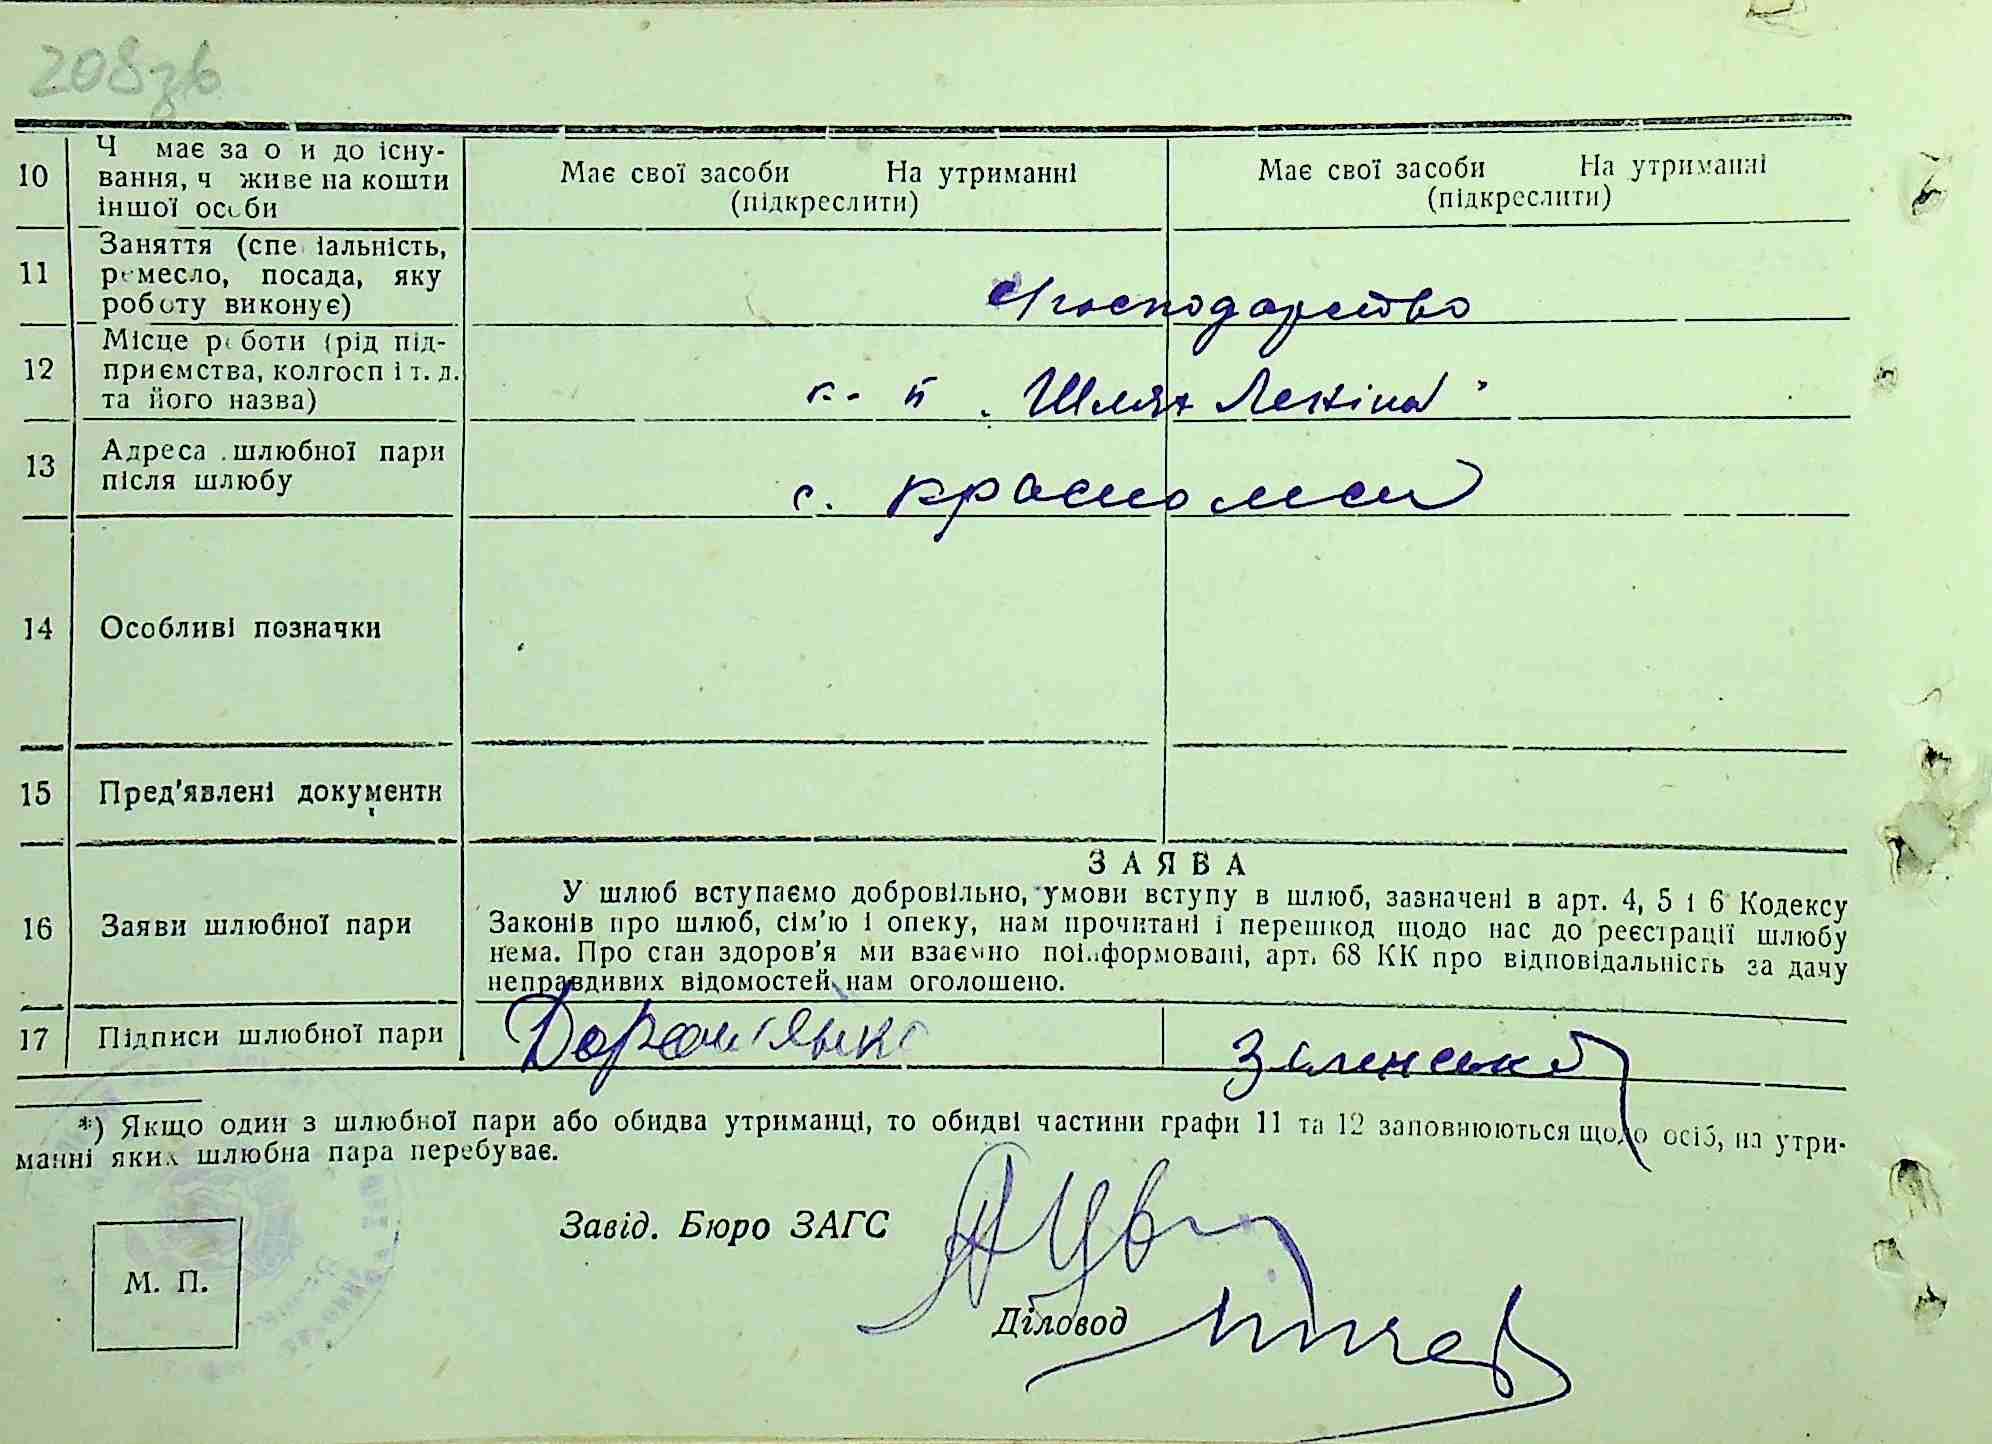 208зв
10
Ч має за о и до існу-
вання, ч живе на кошти
іншої особи
Має свої засоби На утриманні
(підкреслити)
Має свої засоби На утриманні
(підкреслити)
11
Заняття (спе іальність,
ремесло, посада, яку
роботу виконує)
господарство
12
Місце роботи (рід під-
приємства, колгосп і т. д.
та його назва)
к. п. „Шлях Леніна"
13
Адреса шлюбної пари
після шлюбу
с.
14
Особливі позначки
15
Пред'явлені документи
16
Заяви шлюбної пари
ЗАЯВА
У шлюб вступаємо добровільно, умови вступу в шлюб, зазначені в арт. 4, 5 і 6 Кодексу
Законів про шлюб, сім'ю і опеку, нам прочитані і перешкод щодо нас до реєстрації шлюбу
нема. Про стан здоров'я ми взаємно поінформовані, арт. 68 КК про відповідальність за дачу
неправдивих відомостей нам оголошено.
17
Підписи шлюбної пари
*) Якщо один з шлюбної пари або обидва утриманці, то обидві частини графи 11 та 12 заповнюються щодо осіб, на утри-
манні яких шлюбна пара перебуває.
Завід. Бюро ЗАГС
М. П.
Діловод